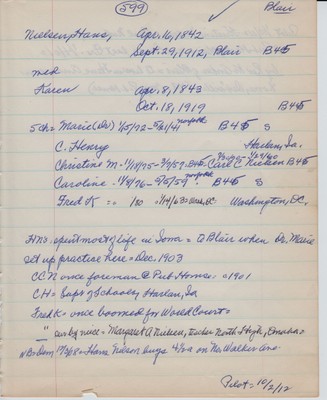 599
Blair
Nielsen, Hans, Apr. 16, 1842
Sept. 29, 1912, Blair B45
med
Karen Apr. 8, 1843
Oct. 18, 1919 B45
5 ch = Marie (Dr) 1/5/72 - 5/21/41 norfolk B45 S
C. Henry Harlan, Ia.
Christine M - 1/18/75 - 9/9/57 - B45 Carl C Nielsen B45
Caroline - 1/8/76 - 5/5/59 norfolk B45 S
Fred K = = /80 Washington, DC,
HN = spent most of life in Iowa = to Blair when Dr. Marie
set up practice here = Dec, 1903
CCN once foreman @ Pub House = 1901
CH = Supt of Schools, Harlan, Ia
Fred K = once boomed for World Court =
" sur by niece = Margaret A Nielsen, teacher North High, Omaha =
Hans Nielson buys 4 1/2 a on No. Walker Ave.
Pilot = 10/2/12